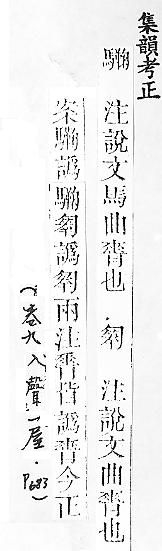 集韻考正
注說文馬曲脊也 . 注說文曲脊也
案譌譌兩注皆譌今正
(卷九入聲一屋.P683)